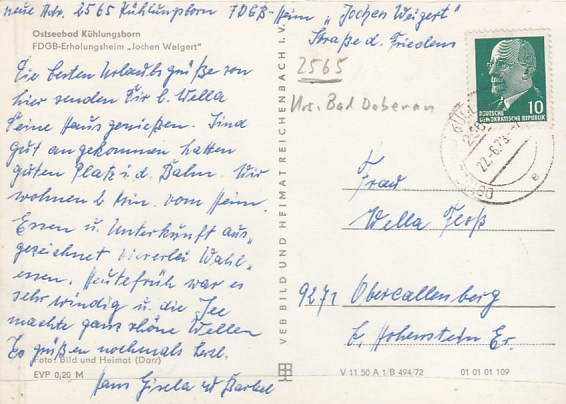 neue Adr. 2565 Kühlungsborn FDGB-Heim „Jochen Weigert"
Straße d. Friedens
Ostseebad Kühlungsborn
FDGB-Erholungsheim „Jochen Weigert"
2565
Krs. Bad Doberan
Die besten Urlaubsgrüße von
hier senden Dir l. Wella
Deine Hausgenießen. Sind
gut angekommen hatten
guten Platz i. d. Bahn. Wir
wohnen 6 Min. vom Heim.
Essen u. Unterkunft aus-
gezeichnet viererlei Wahl-
essen. Heutefrüh war es
sehr windig u. die See
machte ganz schöne Wellen
Es grüßen nochmals herzl.
Hans Gisela u. Bärbel
Foto: Bild und Heimat (Darr)
EVP 0,20 M
VEB BILD UND HEIMAT REICHENBACH I. V.
DEUTSCHE
DEMOKRATISCHE REPUBLIK
10
22.-6.73
Frau
Wella
9271 Obercallenberg
b. Hohenstein Er.
V 11 50 A 1/B 494/72
01 01 01 109